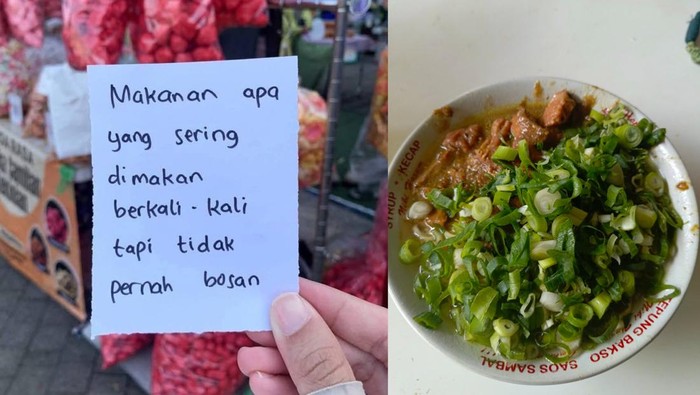 Makanan apa
yang sering
dimakan
berkali-kali
tapi tidak
pernah bosan
SYRUP • KECAP
TEPUNG BAKSO
SAOS SAMBAL